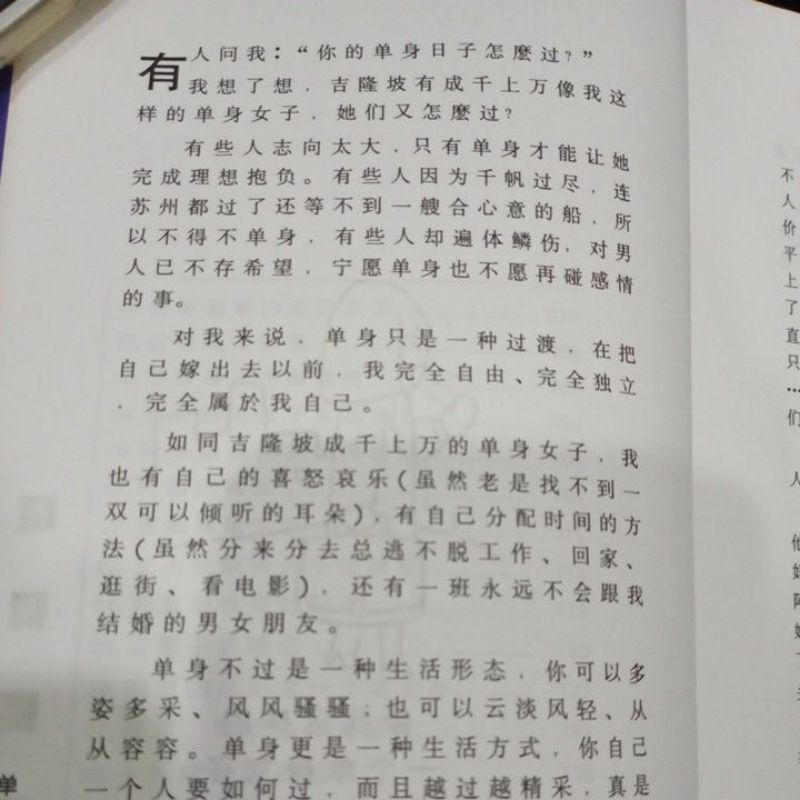 有人问我：“你的单身日子怎麽过？”
我想了想，吉隆坡有成千上万像我这
样的单身女子，她们又怎麽过？
有些人志向太大，只有单身才能让她
完成理想抱负。有些人因为千帆过尽，连
苏州都过了还等不到一艘合心意的船，所
以不得不单身，有些人却遍体鳞伤，对男
人已不存希望，宁愿单身也不愿再碰感情
的事。
对我来说，单身只是一种过渡，在把
自己嫁出去以前，我完全自由、完全独立
，完全属於我自己。
如同吉隆坡成千上万的单身女子，我
也有自己的喜怒哀乐(虽然老是找不到一
双可以倾听的耳朵)，有自己分配时间的方
法(虽然分来分去总逃不脱工作、回家、
逛街、看电影)，还有一班永远不会跟我
结婚的男女朋友。
单身不过是一种生活形态，你可以多
姿多采、风风骚骚；也可以云淡风轻、从
从容容。单身更是一种生活方式，你自己
一个人要如何过，而且越过越精采，真是
单
不
人
价
平
上
了
直
只
…
们
人
他